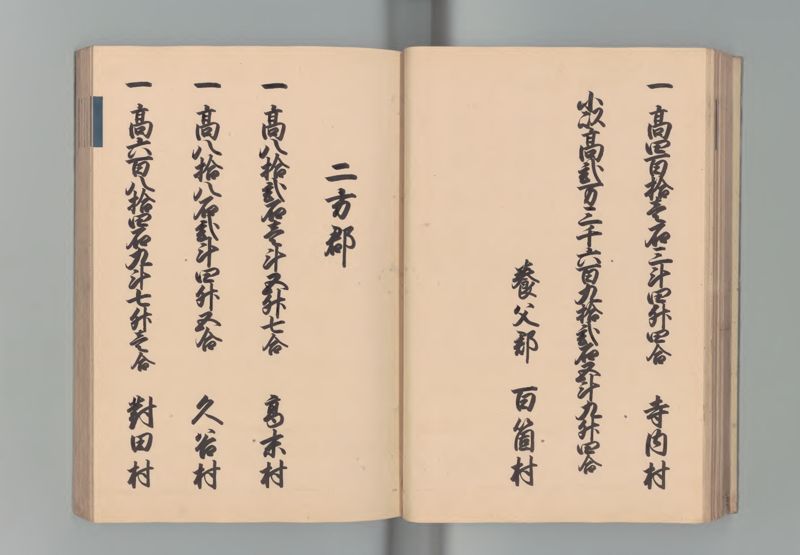 一 高四百拾壱石三斗四升四合 寺内村
小以高弐万三千六百九拾弐石五斗九升四合
養父郡 百箇村
二方郡
一 高八拾弐石壱斗五升七合 高末村
一 高八拾八石弐斗四升五合 久谷村
一 高六百八拾四石九斗七升壱合 對田村